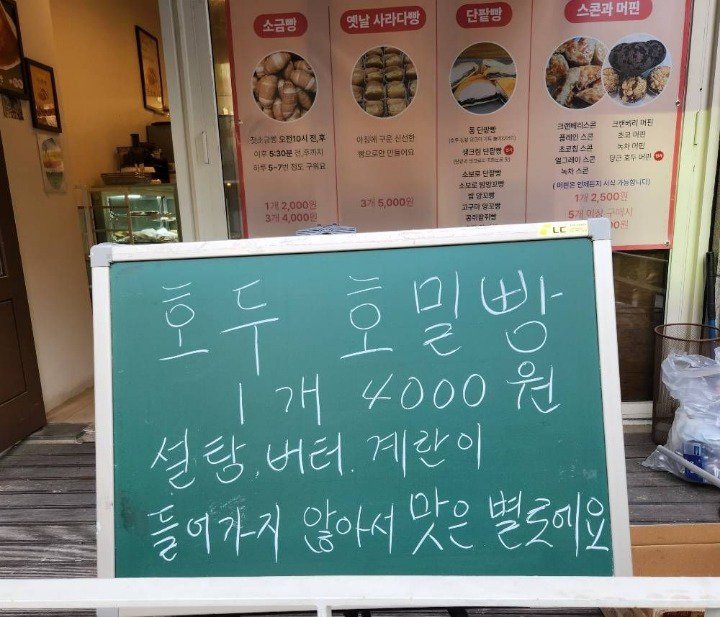 소금빵
옛날 사라다빵
단팥빵
스콘과 머핀
첫소금빵 오전10시 전,후
이후 5:30분 전,후까지
하루 5~7번 정도 구워요
1개 2,000원
3개 4,000원
아침에 구운 신선한
빵으로만 만들어요
3개 5,000원
통 단팥빵
생크림 단팥빵
소보로 단팥빵
소보로 밤팡꼬빵
밤 앙꼬빵
고구마 앙꼬빵
크랜베리스콘
플레인 스콘
초코칩 스콘
얼그레이 스콘
녹차 스콘
크랜베리 머핀
초코 머핀
녹차 머핀
당근 호두 머핀
(머핀은 언제든지 시식 가능합니다)
1개 2,500원
5개 이상 구매시
LC
호두 호밀빵
1개 4000원
설탕, 버터, 계란이
들어가지 않아서 맛은 별로에요